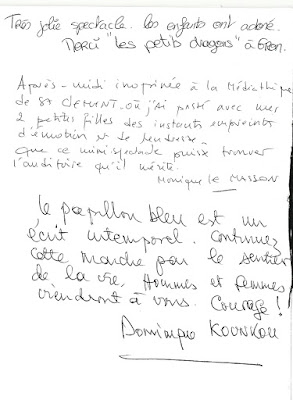 Très jolie spectacle. Les enfants ont adoré.
Merci "les petits dragons" à
Après-midi inopinée à la Médiathèque
de St CLEMENT où j'ai passé avec mes
2 petites filles des instants empreints
d'émotion et de tendresse
que ce minispectacle puisse trouver
l'auditoire qu'il mérite.
Monique le MASSON
Le papillon bleu est un
écrit intemporel. Continuez
cette marche par le sentier
de la vie, Hommes et femmes
viendront à vous. Courage !
Dominique KOUNKOU